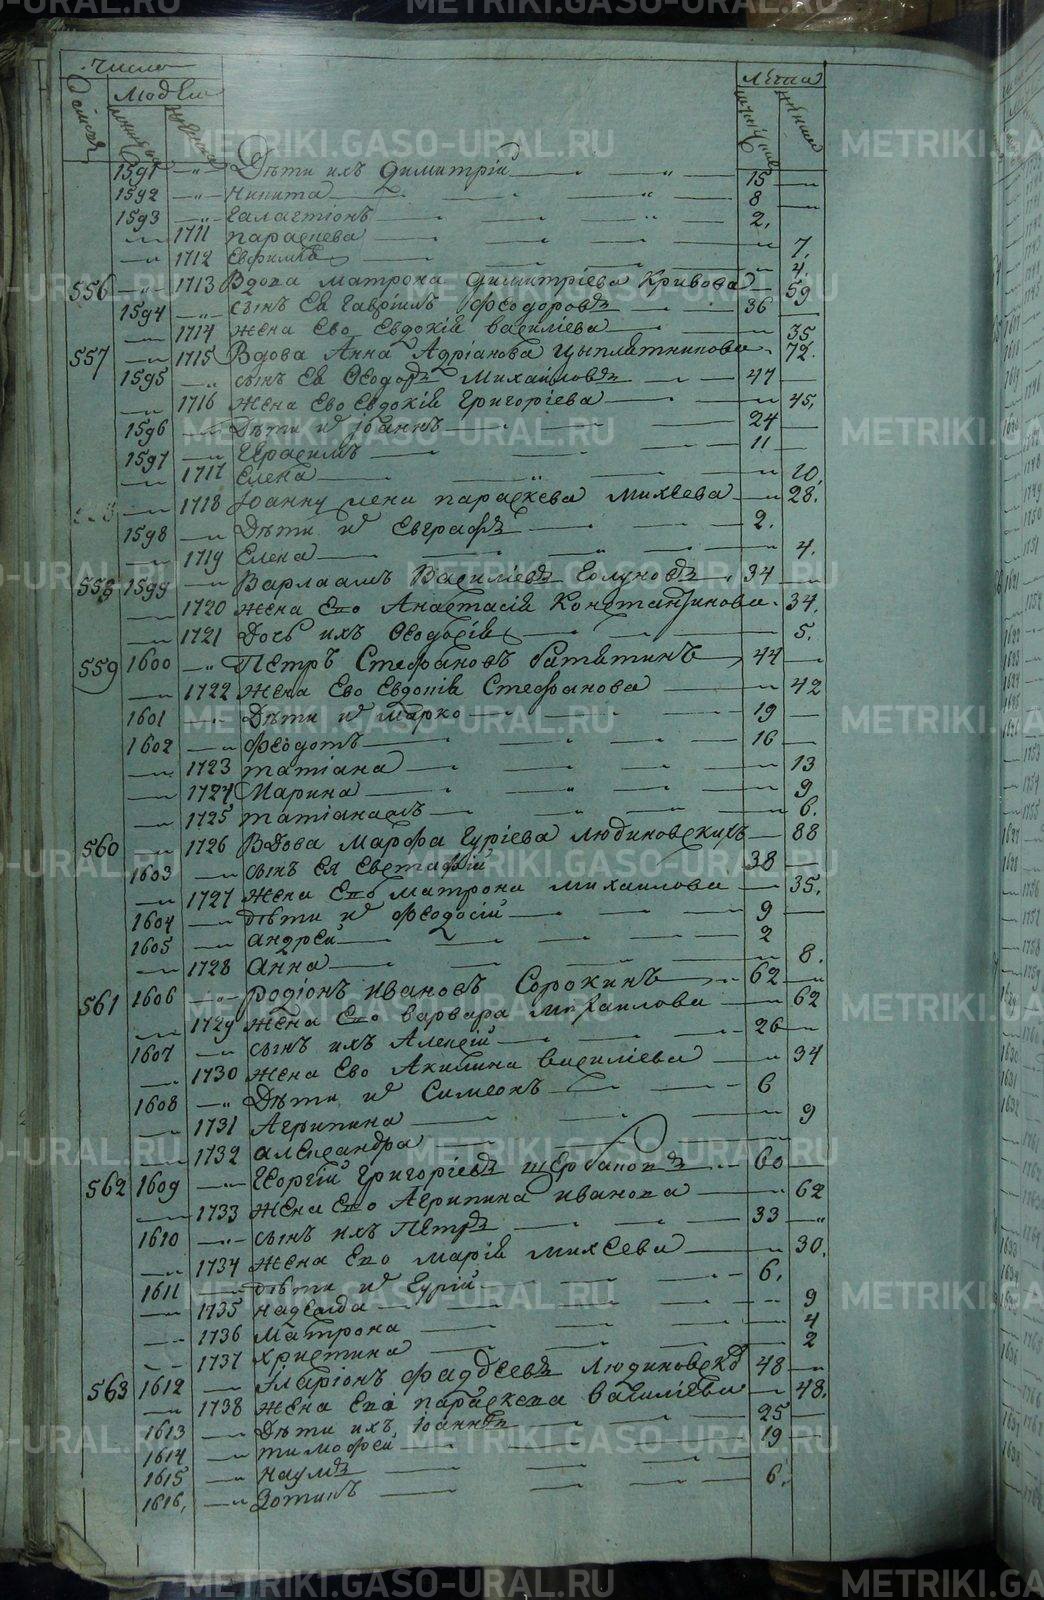 Число
Людей
Лѣта
1591 Дѣти ихъ Димитрій 15
1592 Никита 8
1593 Галактіонъ 2.
1711 Параскева 7.
1712 Евфимія 4.
556 1713 Вдова Матрона Димитріева Кривова 59
1594 сынъ Ея Гавріилъ Феодоровъ 36
1714 жена Ево Евдокія Василіева 35
557 1715 Вдова Анна Адріанова Цыплятникова 72.
1595 сынъ Ея Ѳеодоръ Михаиловъ 47
1716 жена Ево Евдокія Григоріева 45.
1596 Дѣти их Іоаннъ 24
1597 Герасимъ 11
1717 Елена 10.
1718 Іоанну жена Параскева Михѣева 28.
1598 Дѣти их Евграфъ 2.
1719 Елена 4.
558 1599 Варлаамъ Василіевъ Голуновъ 34
1720 жена Ево Анастасія Константинова 34.
1721 Дочь ихъ Ѳеодосія 5.
559 1600 Петръ Стефановъ 44
1722 жена Ево Евдокія Стефанова 42
1601 Дѣти их Марко 19
1602 Феодотъ 16
1723 Татіана 13
1724 Марина 9
1725 6.
560 1726 Вдова Марфа Гуріева Людиновскихъ 88
1603 сынъ Ея Евстафій 38
1727 жена Ево Матрона Михаилова 35.
1604 дѣти их Феодосій 9
1605 Андрей 2
1728 Анна 8.
561 1606 Родіонъ Ивановъ Сорокинъ 62
1729 жена Ево Варвара Михаилова 62
1607 сынъ ихъ Алексѣй 26
1730 жена Ево Акилина Василіева 34
1608 Дѣти их Симеонъ 6
1731 Агрипина 9
1732 Александра
562 1609 Георгій Григоріевъ Щербаковъ 60
1733 жена Ево Агрипина Иванова 62
1610 сынъ ихъ Петръ 33
1734 жена Ево Марія Михѣева 30.
1611 дѣти их Гурій 6.
1735 Надежда 9
1736 Матрона 4
1737 Христина 2
563 1612 Иларіонъ Фаддѣевъ Людиновскъ 48
1738 жена Ево Параскева Василіева 48.
1613 Дѣти ихъ Іоаннъ 25
1614 Тимофей 19
1615 Наумъ
1616. Зотикъ 6.
METRIKI.GASO-URAL.RU